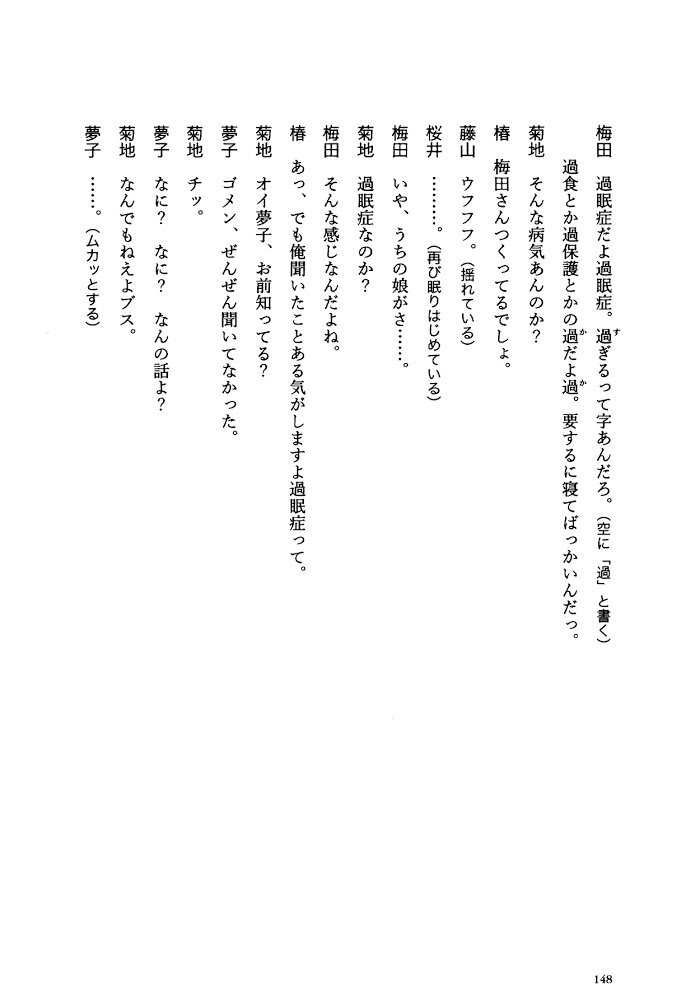 梅田　過眠症だよ過眠症。過ぎるって字あんだろ。（空に「過」と書く）
過食とか過保護とかの過だよ過。要するに寝てばっかいんだっ。
菊地　そんな病気あんのか？
椿　梅田さんつくってるでしょ。
藤山　ウフフフ。（揺れている）
桜井　………。（再び眠りはじめている）
梅田　いや、うちの娘がさ……。
菊地　過眠症なのか？
梅田　そんな感じなんだよね。
椿　あっ、でも俺聞いたことある気がしますよ過眠症って。
菊地　オイ夢子、お前知ってる？
夢子　ゴメン、ぜんぜん聞いてなかった。
菊地　チッ。
夢子　なに？　なに？　なんの話よ？
菊地　なんでもねえよブス。
夢子　……。（ムカッとする）
148